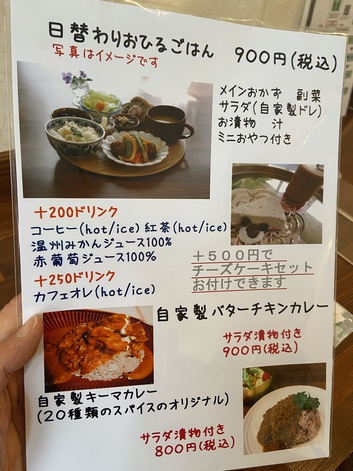 日替わりおひるごはん　900円(税込)
写真はイメージです
メインおかず　副菜
サラダ(自家製ドレ)
お漬物　汁
ミニおやつ付き
+200ドリンク
コーヒー(hot/ice) 紅茶(hot/ice)
温州みかんジュース100%
赤葡萄ジュース100%
+250ドリンク
カフェオレ(hot/ice)
+500円で
チーズケーキセット
お付けできます
自家製バターチキンカレー
サラダ漬物付き
900円(税込)
自家製キーマカレー
(20種類のスパイスのオリジナル)
サラダ漬物付き
800円(税込)